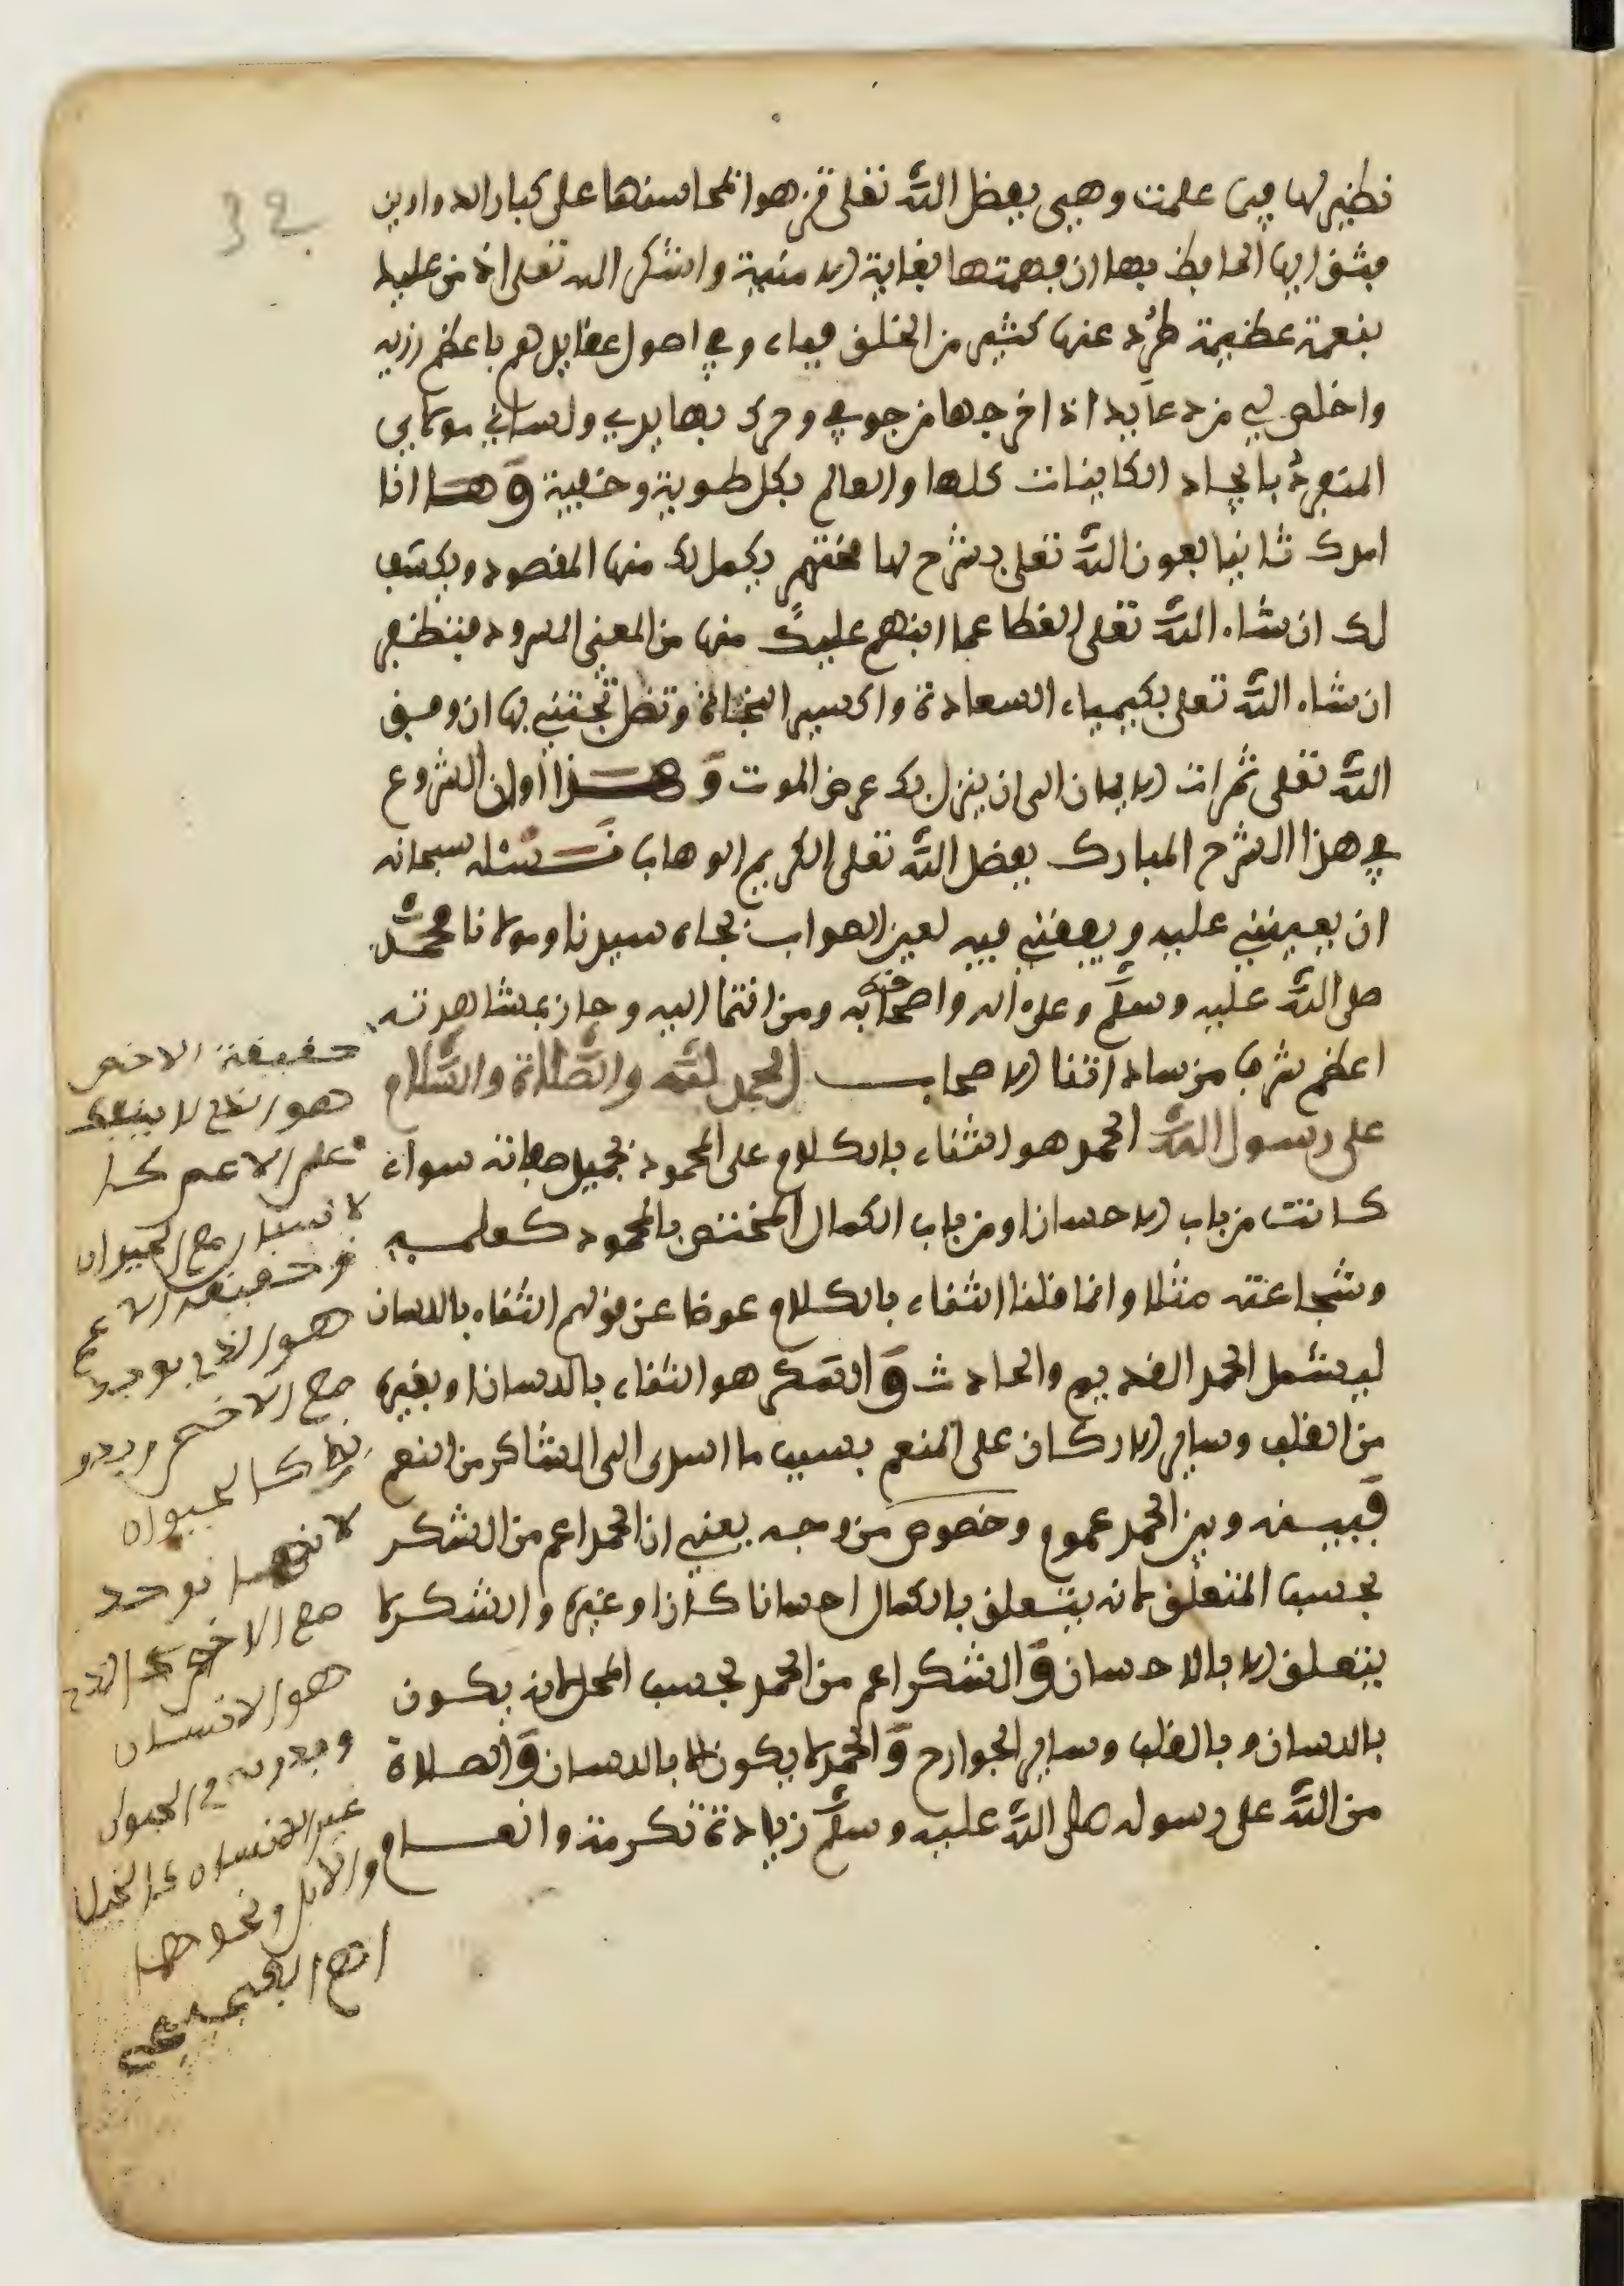 32
نظير لها فيما علمت وهي بفضل الله تعلى تزهوا بمحاسنها على كبار الدواوين
فشق ايها الحافظ بها ان فهمتها بغاية الامنية واشكر الله تعلى اذ من عليك
بنعمة عظيمة طرد عنها كثير من الخلق فباء وفي اصول عقايدهم باعظم رزية
واخلص لي من دعايك اذ اخرجها من جوفي وحرك بها يدي ولساني مولاي
المنفرد بايجاد الكاينات كلها والعالم بكل طوية وخفية وها انا
امدك ثانيا بعون الله تعلى بشرح لها مختصر يكمل لك منها المقصود ويكشف
لك ان شاء الله تعلى الغطا عما انبهم عليك منها من المعنى المسرود فتظفر
ان شاء الله تعلى بكيمياء السعادة واكسير النجاة وتظل تجتني بها ان وفق
الله تعلى ثمرات الايمان الى ان ينزل بك عرض الموت وهذا اوان الشروع
في هذا الشرح المبارك بفضل الله تعلى الكريم الوهاب نسئله سبحانه
ان يعينني عليه ويوفقني فيه لعين الصواب بجاه سيدنا ومولانا محمد
صلى الله عليه وسلم وعلى اله واصحابه ومن انتما اليه وحاز بمشاهدته
اعظم شرف من ساداتنا الاصحاب الحمد لله والصلاة والسلام
على رسول الله الحمد هو الثناء بالكلام على المحمود بجميل صفاته سواء
كانت من باب الاحسان او من باب الكمال المختص بالمحمود كعلمه
وشجاعته مثلا وانما قلنا الثناء بالكلام عوضا عن قولهم الثناء باللسان
ليشمل الحمد القديم والحادث والشكر هو الثناء باللسان او بغيره
من القلب وساير الاركان على المنعم بسبب ما اسدى الى الشاكر من النعم
فبينه وبين الحمد عموم وخصوص من وجه يعني ان الحمد اعم من الشكر
بحسب المتعلق لانه يتعلق بالكمال احسانا كان او غيره والشكر لا
يتعلق الا بالاحسان والشكر اعم من الحمد بحسب المحل لانه يكون
باللسان وبالقلب وساير الجوارح والحمد لا يكون الا باللسان والصلاة
من الله على رسوله صلى الله عليه وسلم زيادة تكرمة وانعام
حقيقة الاخص
هو الذي لا ينفك
على الاعم كا
لانسان مع الحيوان
وحقيقة الاعم
هو الذي يوجد
مع الاخص وبدو
نه كالحيوان
لانه يوجد
مع الاخص الذي
هو الانسان
وبدونه في الحيوان
غير الانسان كالخيل
والابل ونحوهما